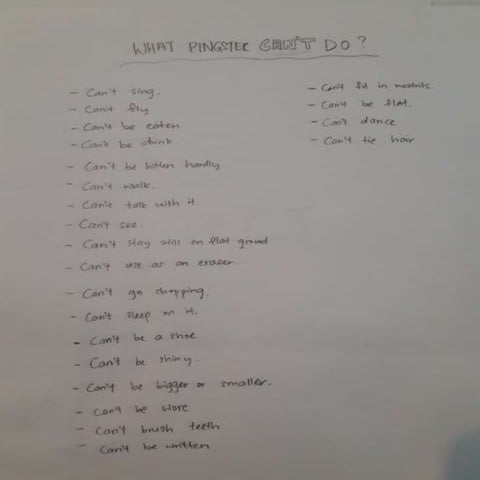 WHAT PINGSTER CAN'T DO?
- Can't sing.
- Can't fly
- Can't be eaten
- Can't be drink.
- Can't be bitten hardly
- Can't walk.
- Can't talk with it
- Can't see
- Can't stay still on flat ground
- Can't use as an eraser
- Can't go shopping.
- Can't sleep on it.
- Can't be a shoe
- Can't be shiny.
- Can't be bigger or smaller.
- Can't be wore
- Can't brush teeth
- Can't be written
- Can't fit in nostrils.
- Can't be flat.
- Can't dance
- Can't tie hair